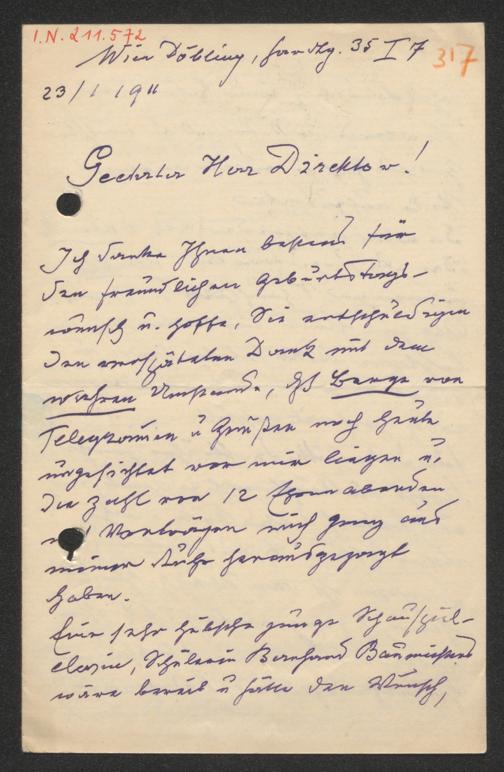 I.N. 211.572
Wien Döbling, Hardtg. 35 I 7
317
23/1 1911
Geehrter Herr Direktor!
Ich danke Ihnen bestens für
den freundlichen Geburtstags-
wunsch u. hoffe, Sie entschuldigen
den verspäteten Dank mit dem
wahren Umstande, daß Berge von
Telegramen u Grüßen noch heute
ungesichtet vor mir liegen u.
die Zahl von 12 Ehrenabenden
Vorträgen mich ganz aus
meiner Ruhe herausgejagt
haben.
Eine sehr hübsche junge Schauspiel-
lerin, Schülerin Bernhard Baumeisters
wäre bereit u hätte den Wunsch,